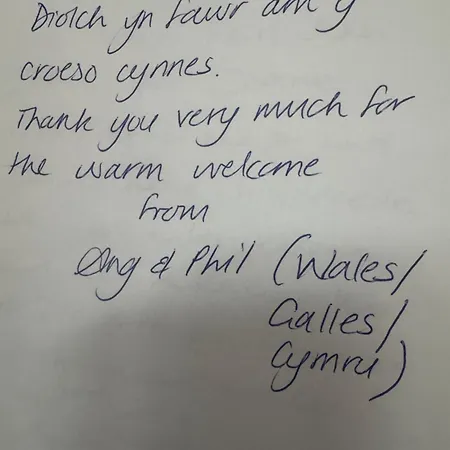 Diolch yn fawr am y
croeso cynnes.
Thank you very much for
the warm welcome
from
Ang & Phil (Wales/
Galles/
Cymru)